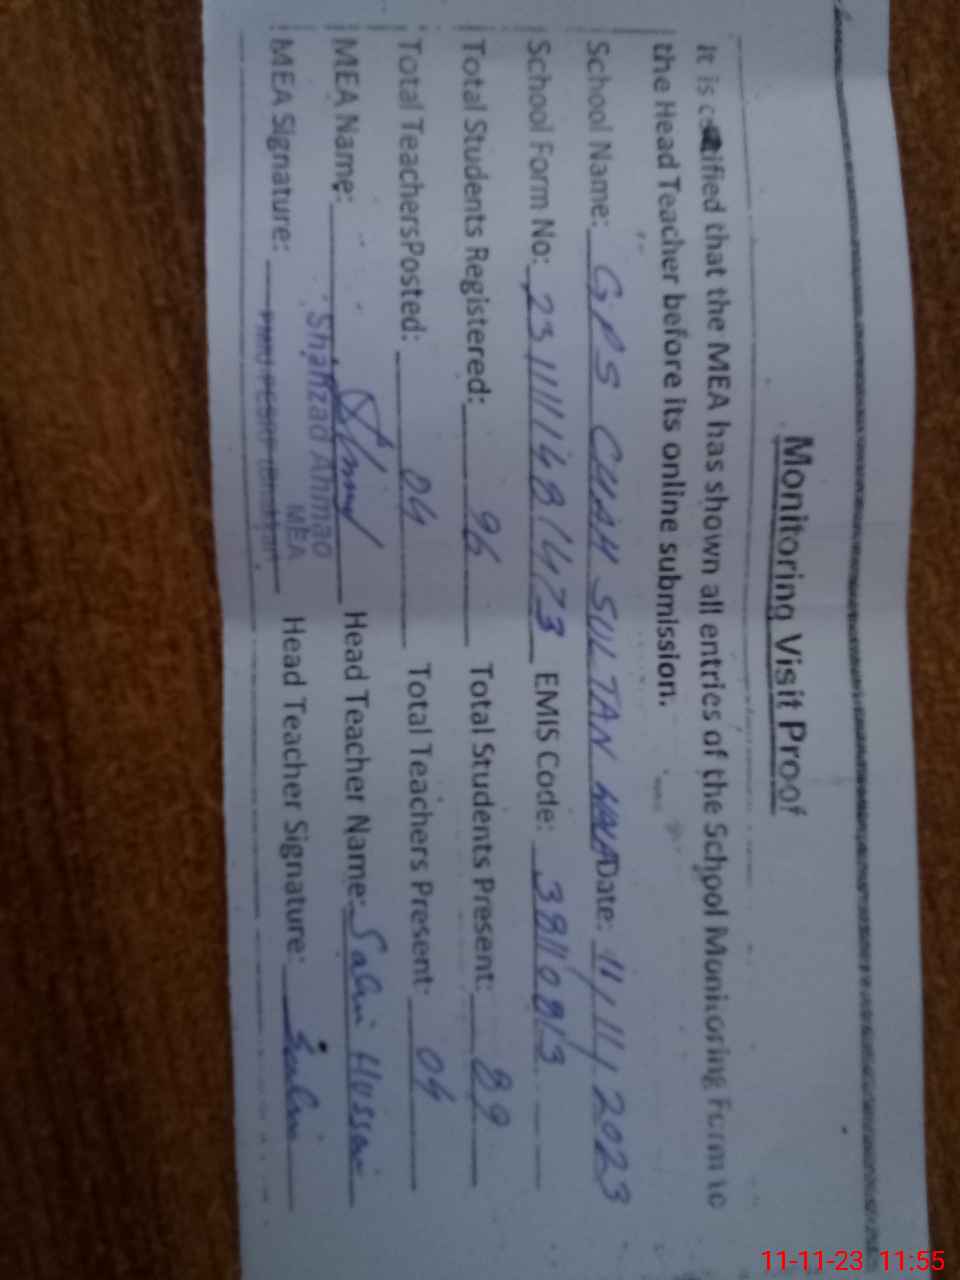 Monitoring Visit Proof
It is certified that the MEA has shown all entries of the School Monitoring Form to
the Head Teacher before its online submission.
School Name: GPS CHAH SULTAN Date: 11/11/2023
School Form No: 231111481473 EMIS Code: 38110813
Total Students Registered: 96 Total Students Present: 89
Total TeachersPosted: 04 Total Teachers Present: 04
MEA Name: Head Teacher Name: Salim Hussain
Shahzad Ahmad
MEA
MEA Signature: Head Teacher Signature: Salim
11-11-23 11:55